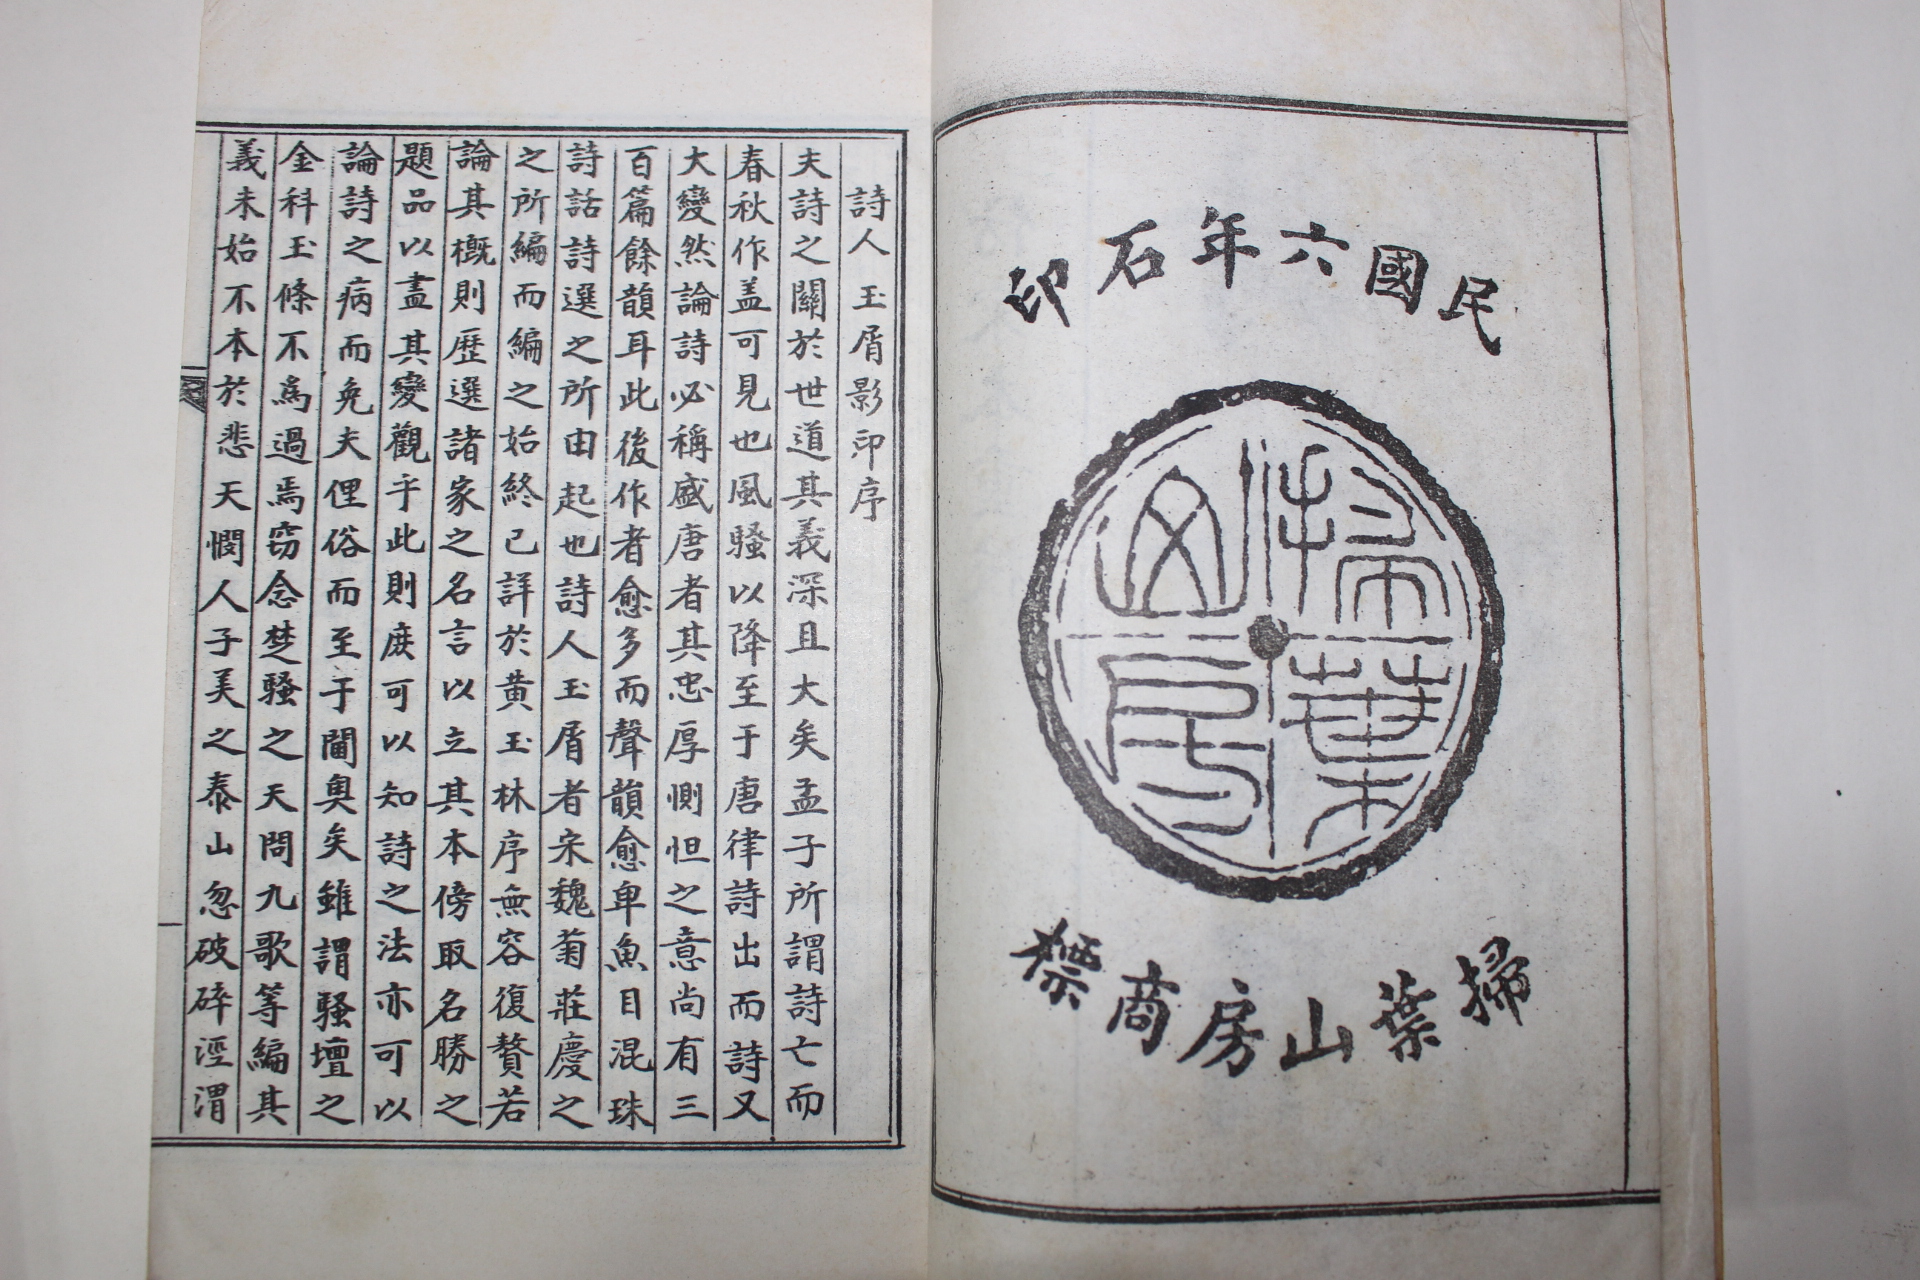 民國六年石印
掃葉山房
掃葉山房商標
詩人玉屑影印序
夫詩之關於世道其義深且大矣孟子所謂詩亡而
春秋作盖可見也風騷以降至于唐律詩出而詩又
大變然論詩必稱盛唐者其忠厚惻怛之意尚有三
百篇餘韻耳此後作者愈多而聲韻愈卑魚目混珠
詩話詩選之所由起也詩人玉屑者宋魏菊莊慶之
之所編而編之始終已詳於黄玉林序無容復贅若
論其概則歷選諸家之名言以立其本傍取名勝之
題品以盡其變觀乎此則庶可以知詩之法亦可以
論詩之病而免夫俚俗而至于閫奧矣雖謂騷壇之
金科玉條不為過焉窃念楚騷之天問九歌等編其
義未始不本於悲天憫人子美之泰山忽破碎涇渭